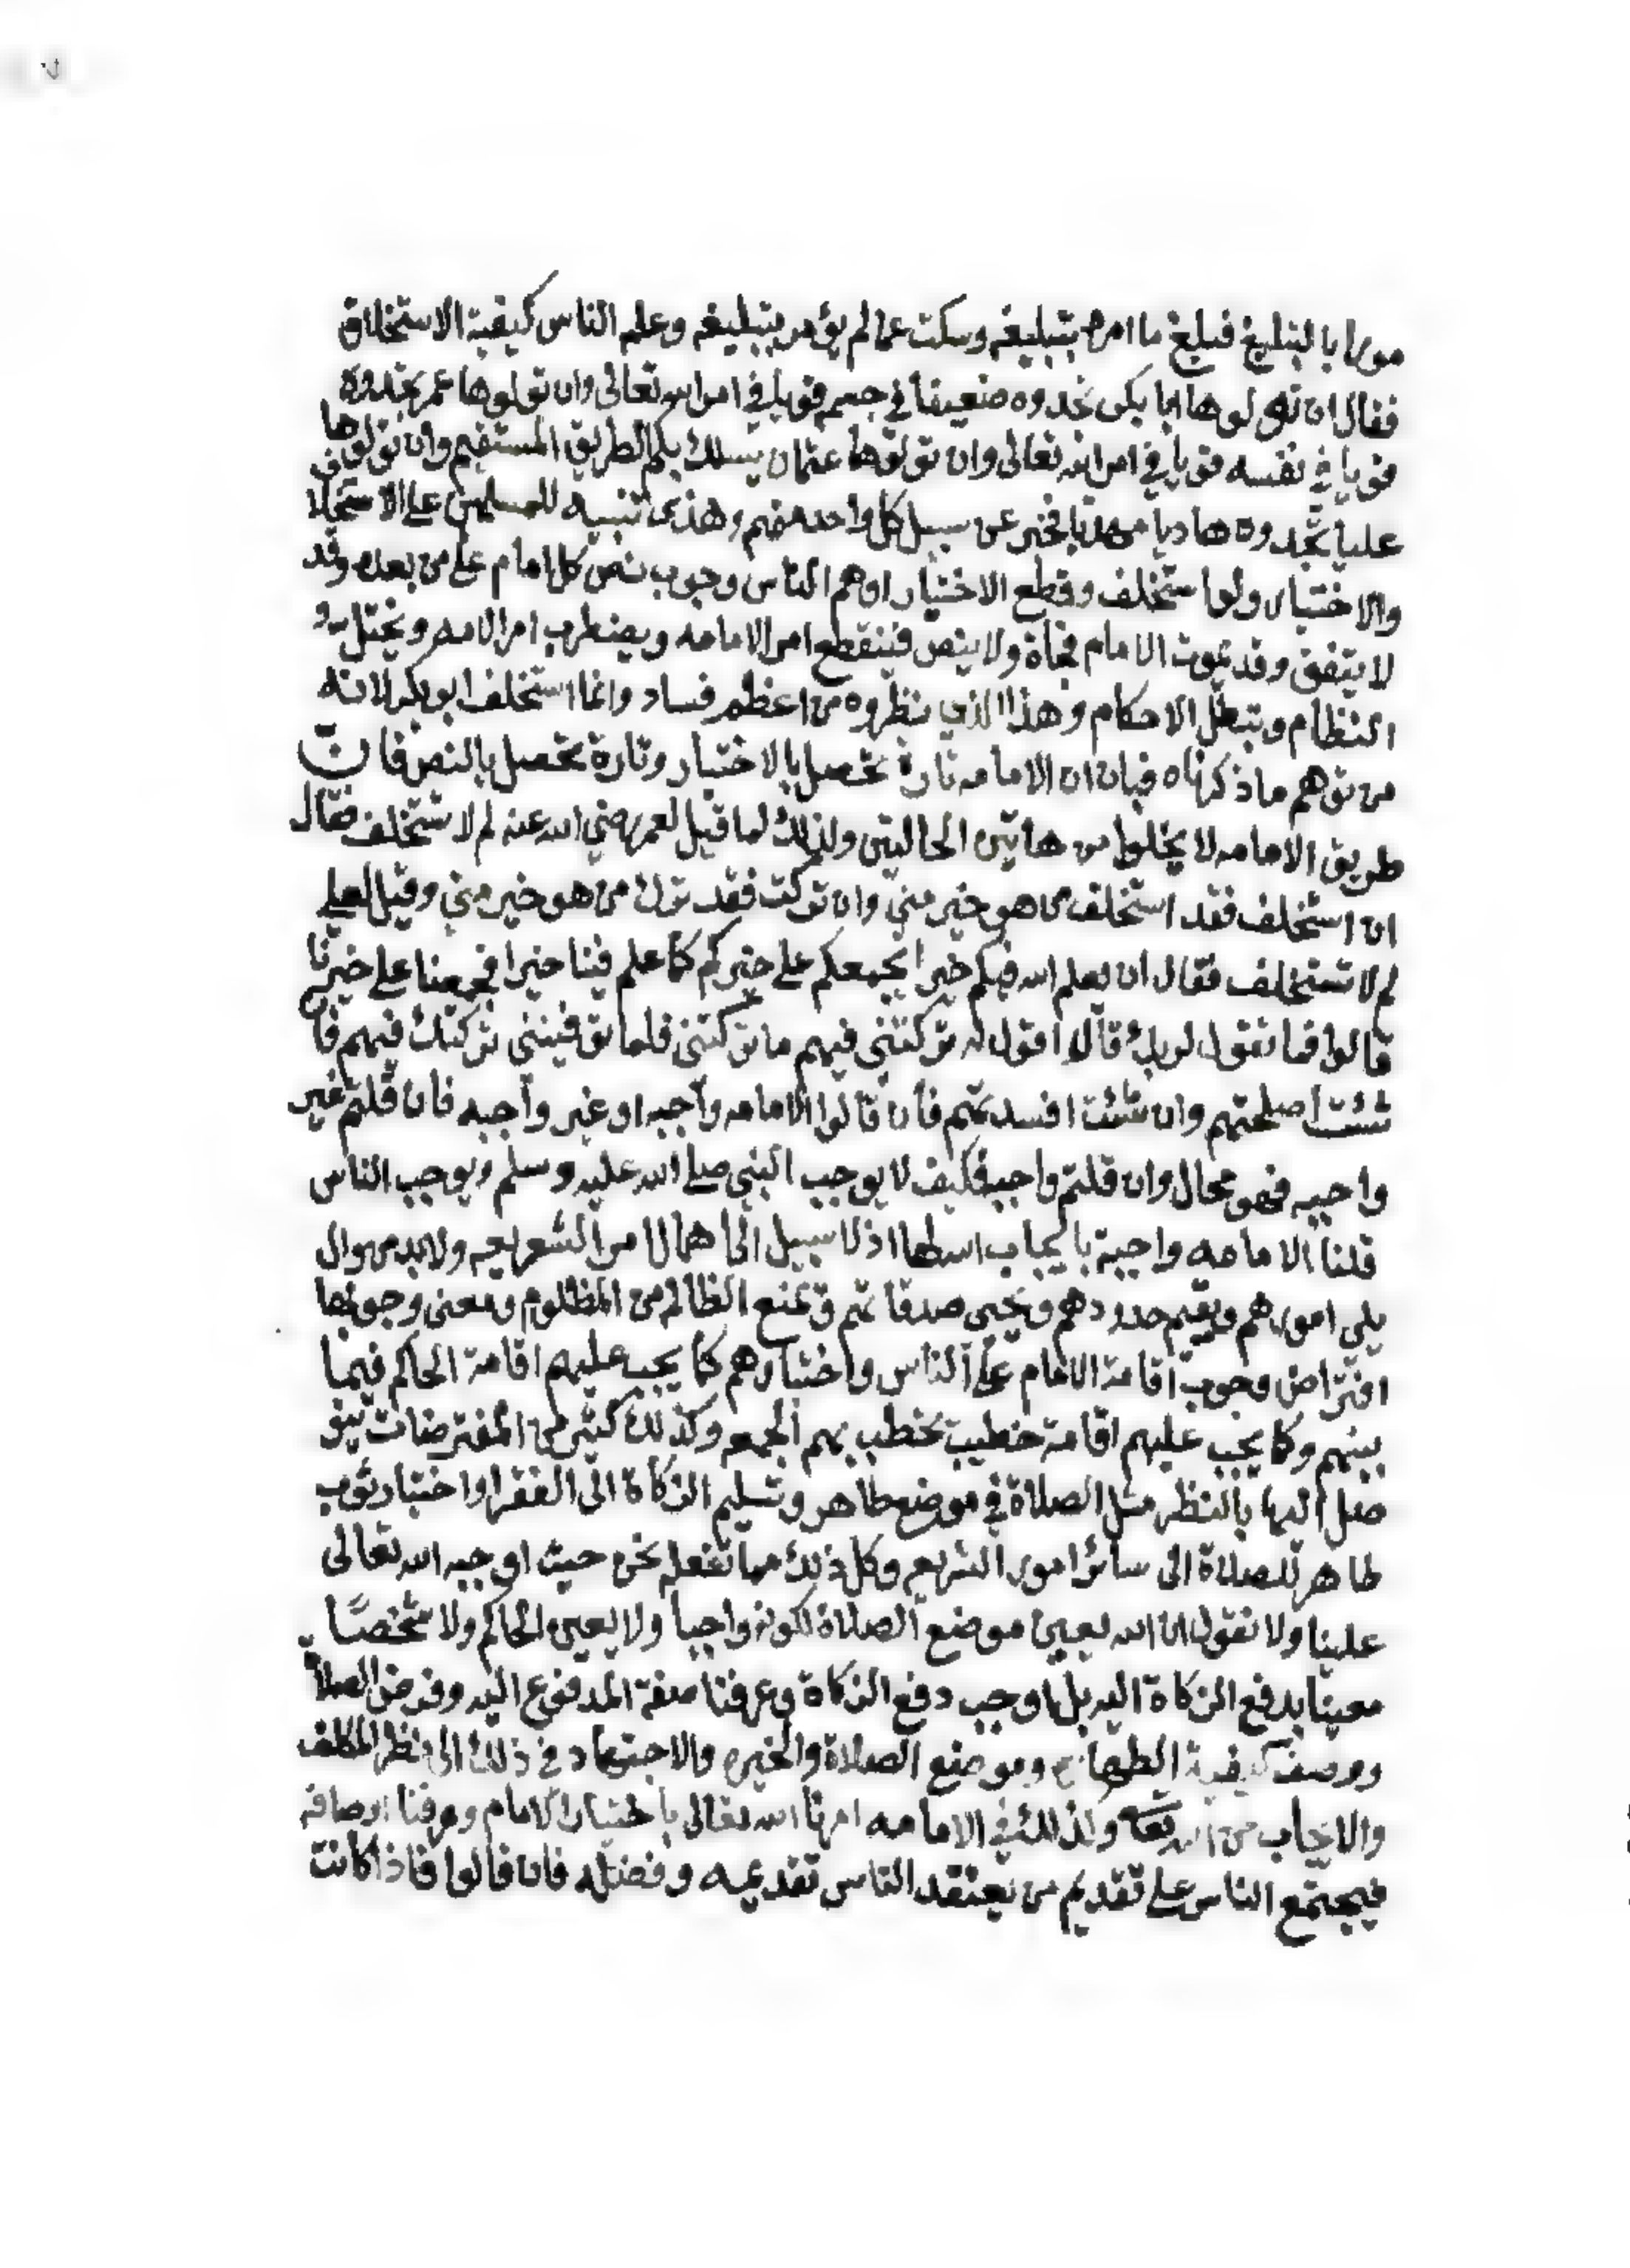 مورا بالتبليغ فبلغ ما امره بتبليغه وسكت عما لم يؤمر بتبليغه وعلم الناس كيفية الاستخلاق
فقال ان تولوها ابا بكر تجدوه ضعيفا في جسمه قويا في امر الله تعالى وان تولوها عمر تجدوه
قويا في نفسه قويا في امر الله تعالى وان تولوها عثمان يسلك بكم الطريق المستقيم وان تولوها
عليا تجدوه هاديا مهديا فخبر عن سبيل كل واحد منهم وهذا تنبيه للمسلمين على الاستخلاف
والاختيار ولو استخلف وقطع الاختيار اوهم الناس وجوب نص كل امام على من بعده وقد
لا يتفق وقد يموت الامام فجاة ولا ينص فينقطع امر الامامه ويضطرب امر الامه ويختل
النظام وتبطل الاحكام وهذا الذي ينظروه من اعظم فساد وانما استخلف ابو بكر لانه
من توهم ما ذكرناه فبان ان الامامه تارة تحصل بالاختيار وتارة تحصل بالنص فان
طريق الامامه لا يخلوا من هاتين الحالتين ولذلك لما قيل لعمر رضي الله عنه لم لا تستخلف فقال
ان استخلف فقد استخلف من هو خير مني وان تركت فقد ترك من هو خير مني وقيل لعلي
لم لا تستخلف فقال ان يعلم الله فيكم خيرا يجمعكم على خيركم كما علم فينا خيرا فجمعنا على خيرنا
قالوا فما تقول لربك قال اقول له تركتني فيهم ما تركتني فلما توفيتني تركتك فيهم فان
شئت اصلحتهم وان شئت افسدتهم فان قالوا الامامه واجبه او غير واجبه فان قلتم غير
واجبه فهو محال وان قلتم واجبه فكيف لا يوجب النبي صلى الله عليه وسلم ويوجب الناس
قلنا الامامه واجبة بايجاب الله اذ لا سبيل الى اهمال امر الشريعه ولابد من وال
يلي امورهم ويقيم حدودهم ويجبي صدقاتهم ويمنع الظالم من المظلوم ومعنى وجوبها
افتراض وجوب اقامة الامام على الناس واختيارهم كما يجب عليهم اقامة الحاكم فيما
بينهم وكما يجب عليهم اقامة خطيب يخطب بهم الجمعه وكذلك كثير من المفترضات يتو
صل اليها بالنظر مثل الصلاة في موضع طاهر وتسليم الزكاة الى الفقرا واختيار ثوب
طاهر للصلاة الى سائر امور الشريعه وكل ذلك مما نفعله نحن حيث اوجبه الله تعالى
علينا ولا نقول ان الله يعين موضع الصلاة لكونه واجبا ولا يعين الحاكم ولا شخصًا
معينا يدفع الزكاة اليه بل اوجب دفع الزكاة وعرفنا صفة المدفوع اليه وفرض الصلاة
ووصف كيفية الطهارة وموضع الصلاة والخيره والاجتهاد في ذلك الى نظر المكلف
والايجاب من الله تعالى وكذلك في الامامه امرنا الله تعالى باختيار الامام وعرفنا اوصافه
فيجتمع الناس على تقديم من يعتقد الناس تقديمه وفضله فان قالوا فاذا كانت